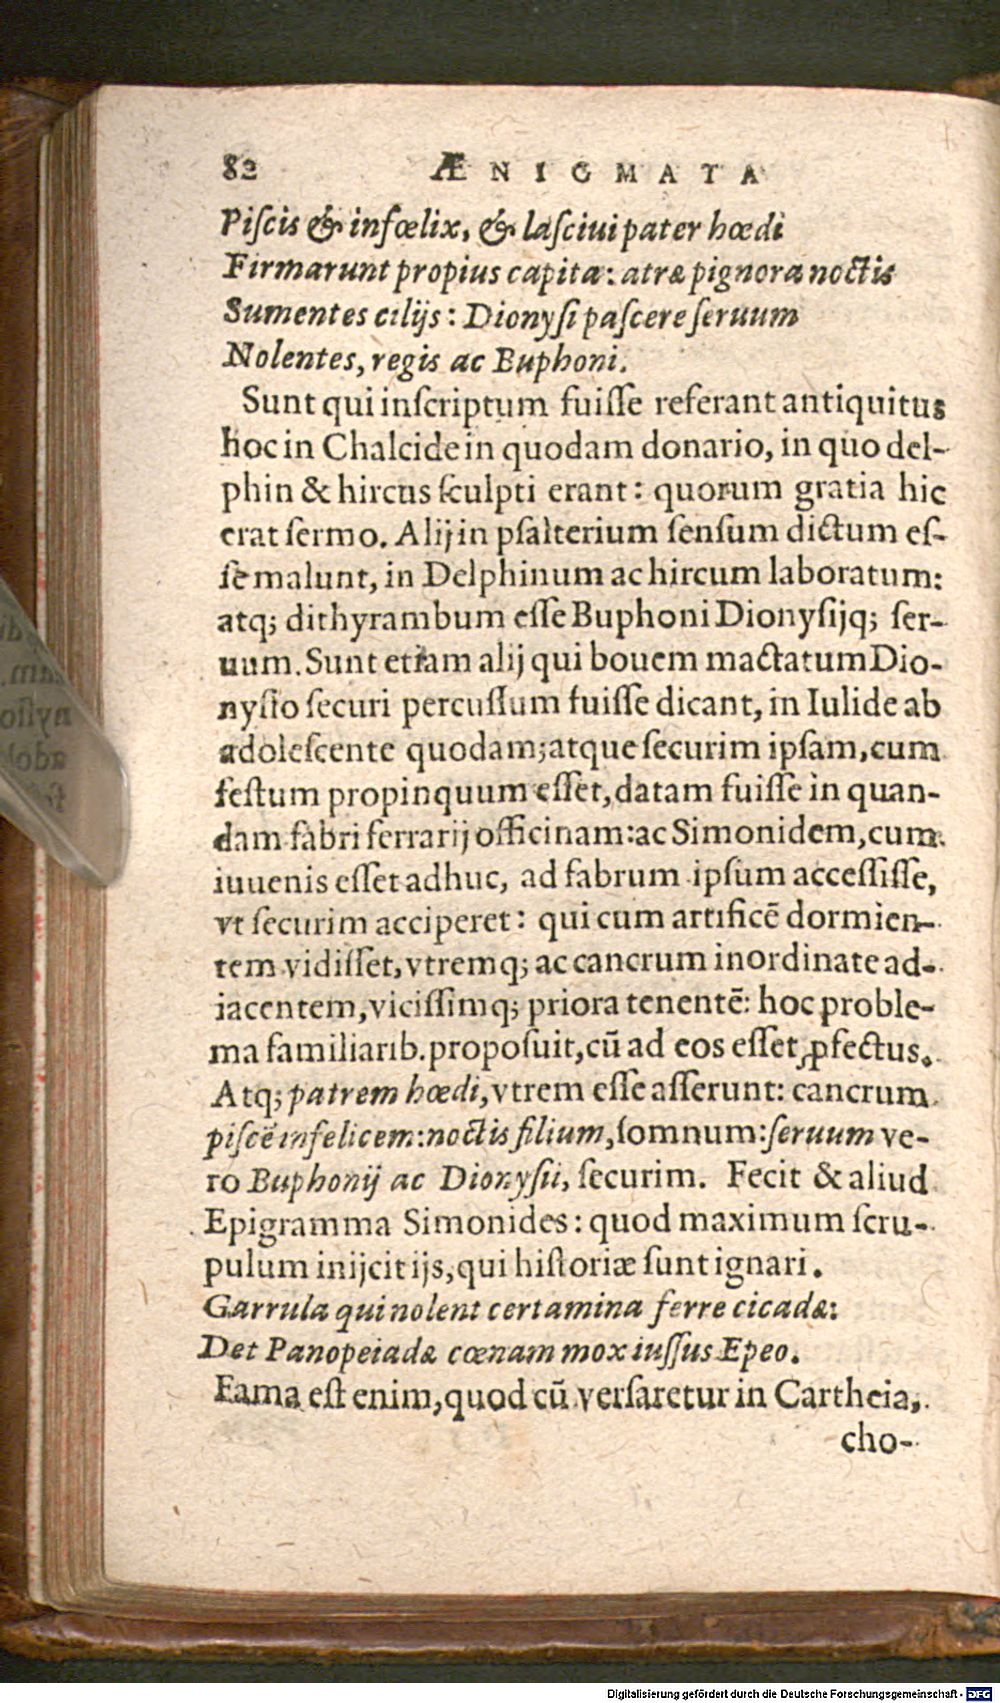 82 ÆNIGMATA
Piſcis & infœlix, & laſciui pater hœdi
Firmarunt propius capita: atræ pignora noctis
Sumentes cilijs: Dionyſi paſcere ſeruum
Nolentes, regis ac Buphoni.
Sunt qui inſcriptum fuiſſe referant antiquitus
hoc in Chalcide in quodam donario, in quo del-
phin & hircus ſculpti erant: quorum gratia hic
erat ſermo. Alij in pſalterium ſenſum dictum eſ-
ſe malunt, in Delphinum ac hircum laboratum:
atq; dithyrambum eſſe Buphoni Dionyſijq; ſer-
uum. Sunt etiam alij qui bouem mactatum Dio-
nyſio ſecuri percuſſum fuiſſe dicant, in Iulide ab
adoleſcente quodam; atque ſecurim ipſam, cum
feſtum propinquum eſſet, datam fuiſſe in quan-
dam fabri ferrarij officinam: ac Simonidem, cum
iuuenis eſſet adhuc, ad fabrum ipſum acceſſiſſe,
vt ſecurim acciperet: qui cum artificē dormien-
tem vidiſſet, vtremq; ac cancrum inordinate ad-
iacentem, viciſſimq; priora tenentē: hoc proble-
ma familiarib. propoſuit, cū ad eos eſſet ꝓfectus.
Atq; patrem hœdi, vtrem eſſe aſſerunt: cancrum
piſcē infelicem: noctis filium, ſomnum: ſeruum ve-
ro Buphonij ac Dionyſii, ſecurim. Fecit & aliud
Epigramma Simonides: quod maximum ſcru-
pulum inijcit ijs, qui hiſtoriæ ſunt ignari.
Garrula qui nolent certamina ferre cicadæ:
Det Panopeiadæ cœnam mox iuſſus Epeo.
Fama eſt enim, quod cū verſaretur in Cartheia,
cho-
Digitalisierung gefördert durch die Deutsche Forschungsgemeinschaft - DFG